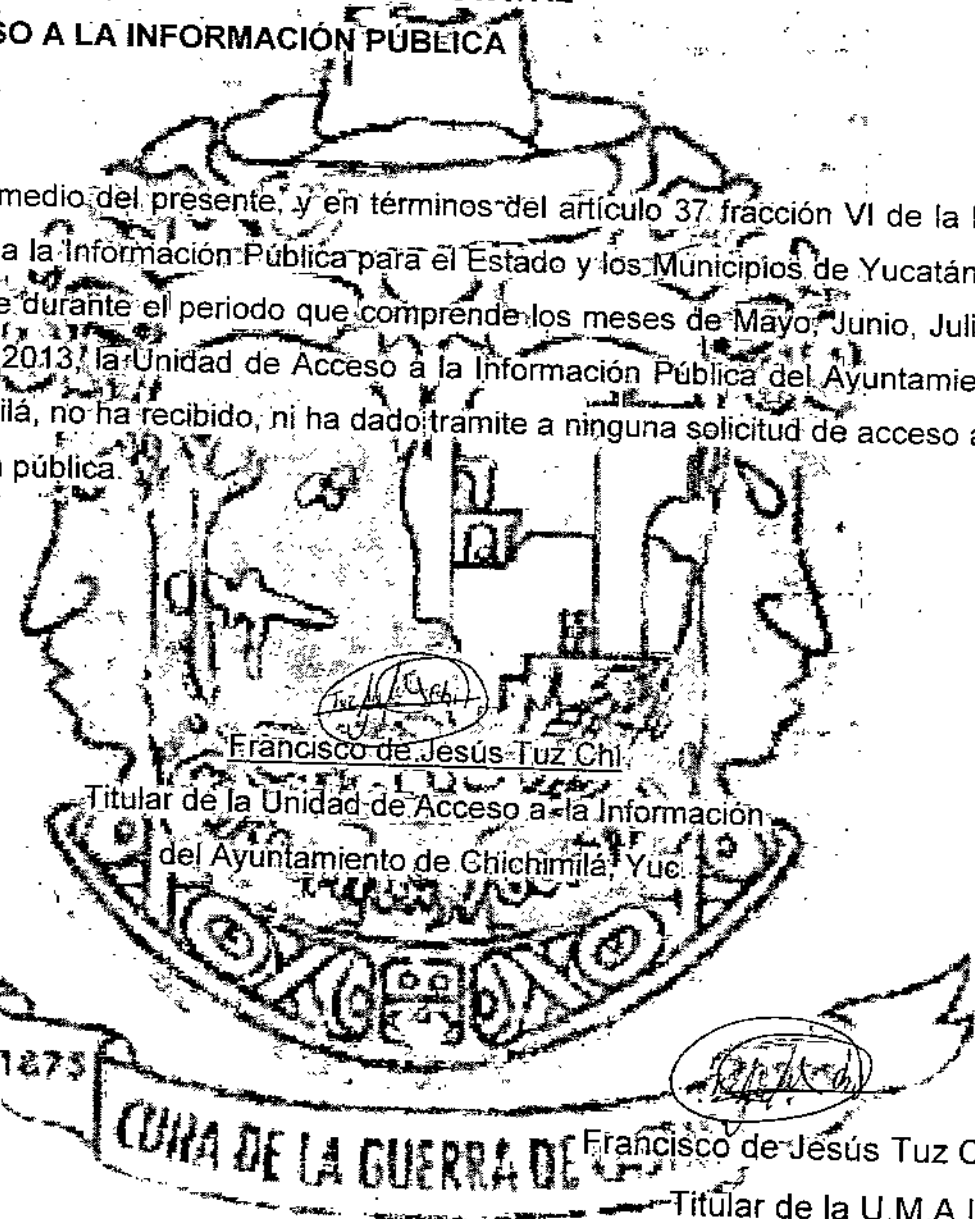 SO A LA INFORMACIÓN PÚBLICA
medio del presente, y en términos del artículo 37 fracción VI de la
a la Información Pública para el Estado y los Municipios de Yucatán
e durante el periodo que comprende los meses de Mayo, Junio, Juli
2013, la Unidad de Acceso a la Información Pública del Ayuntamie
ilá, no ha recibido, ni ha dado tramite a ninguna solicitud de acceso a
pública.
Tuz Chi
Francisco de Jesús Tuz Chi
Titular de la Unidad de Acceso a la Información
del Ayuntamiento de Chichimilá, Yuc.
1873
CUNA DE LA GUERRA DE
Francisco de Jesús Tuz C
Titular de la U.M.A.I